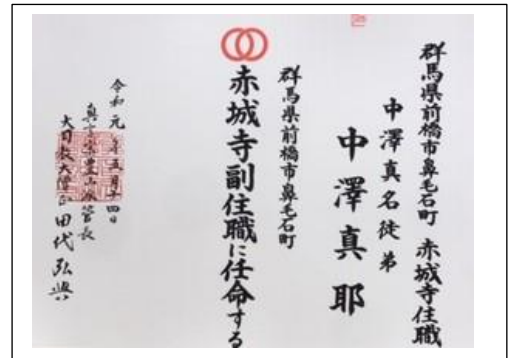 群馬県前橋市鼻毛石町 赤城寺住職
中澤真名徒弟
中澤真耶
群馬県前橋市鼻毛石町
赤城寺副住職に任命する
令和元年五月十四日
真言宗豊山派管長
大日教大僧正田代弘興